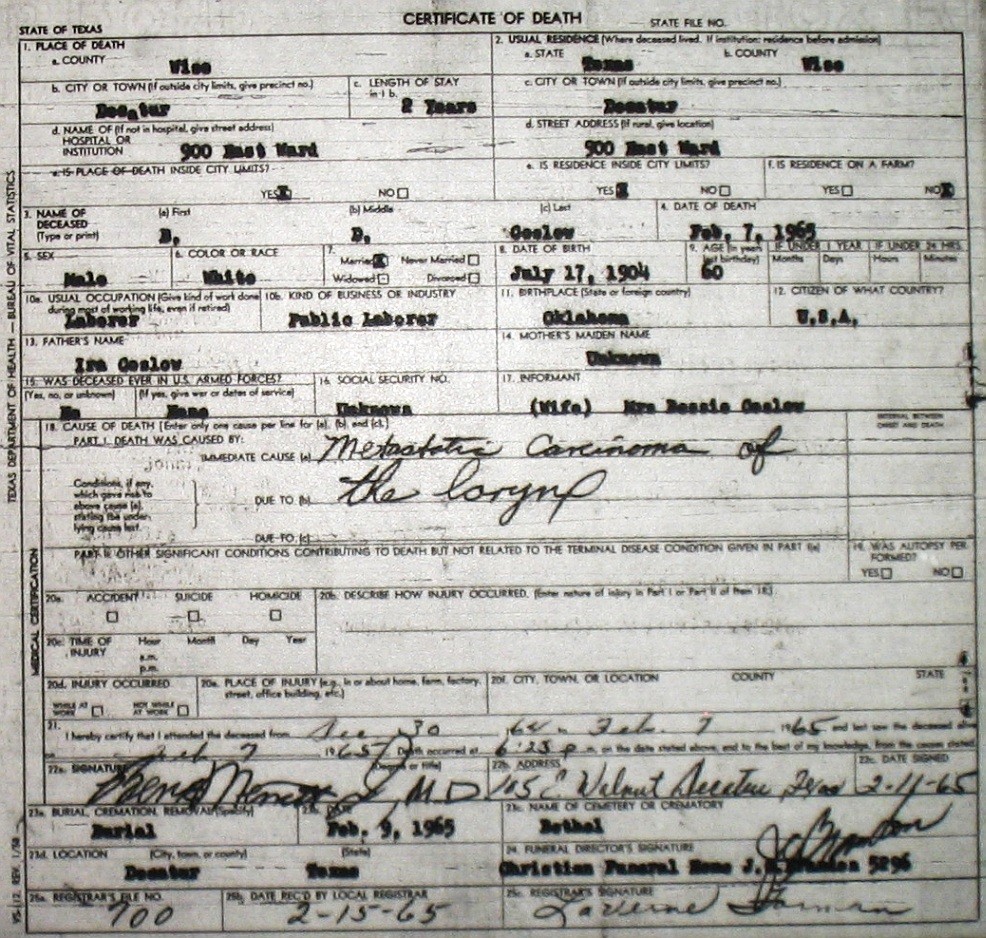 CERTIFICATE OF DEATH
STATE OF TEXAS STATE FILE NO.
1. PLACE OF DEATH
a. COUNTY
Wise
2. USUAL RESIDENCE (Where deceased lived. If institution: residence before admission)
a. STATE b. COUNTY
Texas Wise
b. CITY OR TOWN (If outside city limits, give precinct no.)
Decatur
c. LENGTH OF STAY
in 1 b.
2 Years
c. CITY OR TOWN (If outside city limits, give precinct no.)
Decatur
d. NAME OF (If not in hospital, give street address)
HOSPITAL OR
INSTITUTION 900 East Ward
d. STREET ADDRESS (If rural, give location)
900 East Ward
e. IS PLACE OF DEATH INSIDE CITY LIMITS?
YES X NO
e. IS RESIDENCE INSIDE CITY LIMITS?
YES X NO
f. IS RESIDENCE ON A FARM?
YES NO X
3. NAME OF
DECEASED
(Type or print)
(a) First (b) Middle (c) Last
B. D. Goslow
4. DATE OF DEATH
Feb. 7, 1965
5. SEX
Male
6. COLOR OR RACE
White
7.
Married X Never Married
Widowed Divorced
8. DATE OF BIRTH
July 17, 1904
9. AGE (In years
last birthday)
60
IF UNDER 1 YEAR IF UNDER 24 HRS.
Months Days Hours Minutes
10a. USUAL OCCUPATION (Give kind of work done
during most of working life, even if retired)
Laborer
10b. KIND OF BUSINESS OR INDUSTRY
Public Laborer
11. BIRTHPLACE (State or foreign country)
Oklahoma
12. CITIZEN OF WHAT COUNTRY?
U.S.A.
13. FATHER'S NAME
Ira Goslow
14. MOTHER'S MAIDEN NAME
Unknown
15. WAS DECEASED EVER IN U.S. ARMED FORCES?
(Yes, no, or unknown) (If yes, give war or dates of service)
No None
16. SOCIAL SECURITY NO.
Unknown
17. INFORMANT
(Wife) Mrs Bessie Goslow
18. CAUSE OF DEATH [Enter only one cause per line for (a), (b) and (c).]
INTERVAL BETWEEN
ONSET AND DEATH
PART I. DEATH WAS CAUSED BY:
IMMEDIATE CAUSE (a) Metastatic Carcinoma of
Conditions, if any,
which gave rise to
above cause (a),
stating the under-
lying cause last.
DUE TO (b) the larynx
DUE TO (c)
PART II. OTHER SIGNIFICANT CONDITIONS CONTRIBUTING TO DEATH BUT NOT RELATED TO THE TERMINAL DISEASE CONDITION GIVEN IN PART I(a)
19. WAS AUTOPSY PER-
FORMED?
YES NO
20a. ACCIDENT SUICIDE HOMICIDE
20b. DESCRIBE HOW INJURY OCCURRED. (Enter nature of injury in Part I or Part II of Item 18.)
20c. TIME OF
INJURY
Hour Month Day Year
a.m.
p.m.
20d. INJURY OCCURRED
WHILE AT
WORK
NOT WHILE
AT WORK
20e. PLACE OF INJURY (e.g., in or about home, farm, factory,
street, office building, etc.)
20f. CITY, TOWN, OR LOCATION COUNTY STATE
21.
I hereby certify that I attended the deceased from Dec 30 64 Feb. 7 1965 and last saw the deceased alive
on Feb 7 1965 Death occurred at 6:25 p m, on the date stated above, and to the best of my knowledge, from the causes stated.
22a. SIGNATURE (Degree or title)
M.D
22b. ADDRESS
105 E Walnut Decatur, Texas
22c. DATE SIGNED
2-11-65
23a. BURIAL, CREMATION, REMOVAL (Specify)
Burial
23b. DATE
Feb. 9, 1965
23c. NAME OF CEMETERY OR CREMATORY
Bethel
23d. LOCATION (City, town, or county) (State)
Decatur Texas
24. FUNERAL DIRECTOR'S SIGNATURE
Christian Funeral Home 5296
25a. REGISTRAR'S FILE NO.
700
25b. DATE REC'D BY LOCAL REGISTRAR
2-15-65
25c. REGISTRAR'S SIGNATURE
Laverne
TEXAS DEPARTMENT OF HEALTH — BUREAU OF VITAL STATISTICS
MEDICAL CERTIFICATION
VS-112 REV. 1/58